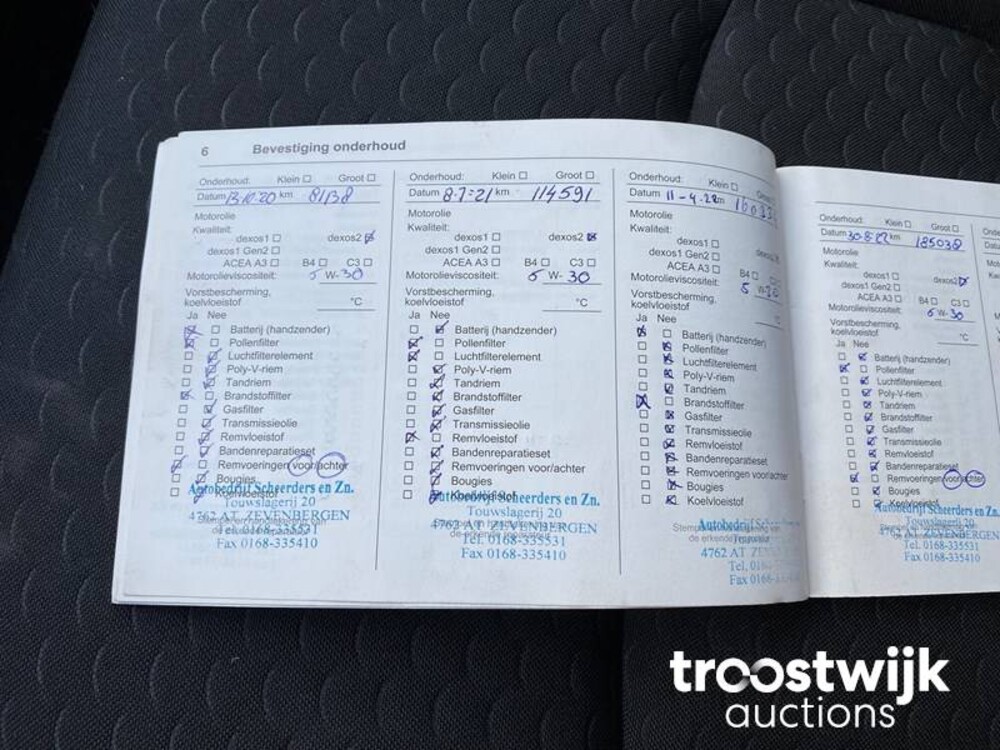 6 Bevestiging onderhoud
Onderhoud: Klein Groot
Datum 13-10-20 km 81138
Motorolie
Kwaliteit:
dexos1 dexos2
dexos1 Gen2
ACEA A3 B4 C3
Motorolieviscositeit: 5 W-30
Vorstbescherming,
koelvloeistof °C
Ja Nee
Batterij (handzender)
Pollenfilter
Luchtfilterelement
Poly-V-riem
Tandriem
Brandstoffilter
Gasfilter
Transmissieolie
Remvloeistof
Bandenreparatieset
Remvoeringen voor/achter
Bougies
Koelvloeistof
Autobedrijf Scheerders en Zn.
Touwslagerij 20
4762 AT ZEVENBERGEN
Tel. 0168-335531
Fax 0168-335410
Onderhoud: Klein Groot
Datum 8-7-21 km 114591
Motorolie
Kwaliteit:
dexos1 dexos2
dexos1 Gen2
ACEA A3 B4 C3
Motorolieviscositeit: 5 W-30
Vorstbescherming,
koelvloeistof °C
Ja Nee
Batterij (handzender)
Pollenfilter
Luchtfilterelement
Poly-V-riem
Tandriem
Brandstoffilter
Gasfilter
Transmissieolie
Remvloeistof
Bandenreparatieset
Remvoeringen voor/achter
Bougies
Koelvloeistof
Autobedrijf Scheerders en Zn.
Touwslagerij 20
4762 AT ZEVENBERGEN
Tel. 0168-335531
Fax 0168-335410
Onderhoud: Klein
Datum 11-4-22
Motorolie
Kwaliteit:
dexos1
dexos1 Gen2
ACEA A3 B4
Motorolieviscositeit:
5 W-30
Vorstbescherming,
koelvloeistof °C
Ja Nee
Batterij (handzender)
Pollenfilter
Luchtfilterelement
Poly-V-riem
Tandriem
Brandstoffilter
Gasfilter
Transmissieolie
Remvloeistof
Bandenreparatieset
Remvoeringen voor/achter
Bougies
Koelvloeistof
Autobedrijf
4762 AT
Tel.
Fax
Onderhoud: Klein Groot
Datum 30-8-22 km 185038
Motorolie
Kwaliteit:
dexos1 dexos2
dexos1 Gen2
ACEA A3 B4 C3
Motorolieviscositeit: 5 W-30
Vorstbescherming,
koelvloeistof °C
Ja Nee
Batterij (handzender)
Pollenfilter
Luchtfilterelement
Poly-V-riem
Tandriem
Brandstoffilter
Gasfilter
Transmissieolie
Remvloeistof
Bandenreparatieset
Remvoeringen voor/achter
Bougies
Koelvloeistof
Autobedrijf Scheerders en Zn.
Touwslagerij 20
4762 AT ZEVENBERGEN
Tel. 0168-335531
Fax 0168-335410
troostwijk
auctions